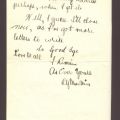 perhaps, when I get it
Well, I guess I'll close
now, as I've got more
letters to write
So Good Bye
Love to all
As Ever Yours